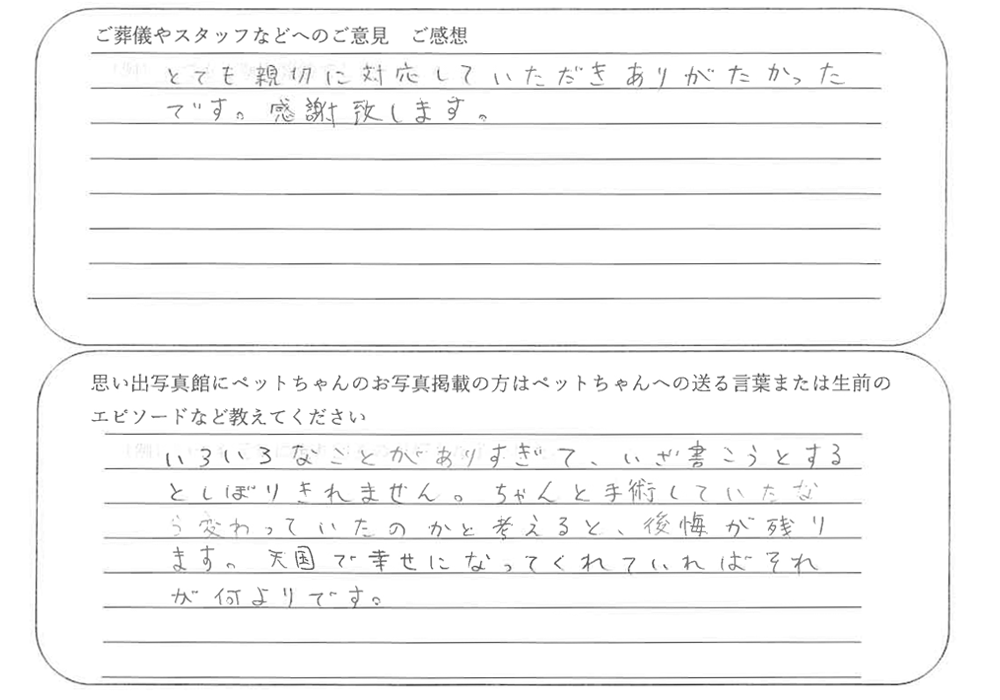 ご葬儀やスタッフなどへのご意見　ご感想
とても親切に対応していただきありがたかった
です。感謝致します。
思い出写真館にペットちゃんのお写真掲載の方はペットちゃんへの送る言葉または生前の
エピソードなど教えてください
いろいろなことがありすぎて、いざ書こうとする
としぼりきれません。ちゃんと手術していたな
ら変わっていたのかと考えると、後悔が残り
ます。天国で幸せになってくれていればそれ
が何よりです。